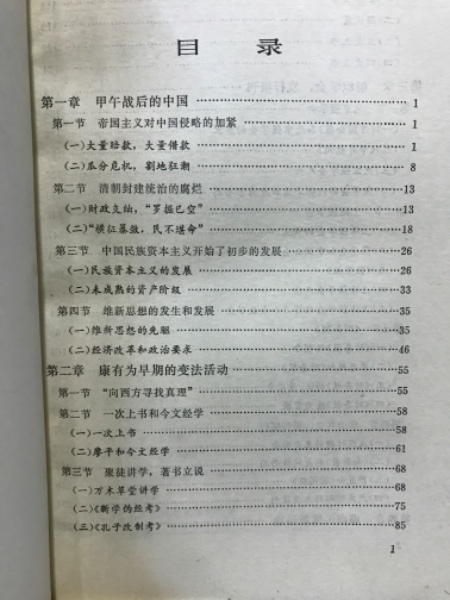 目 录
第一章 甲午战后的中国 …… 1
第一节 帝国主义对中国侵略的加紧 …… 1
(一)大量赔款，大量借款 …… 1
(二)瓜分危机，割地狂潮 …… 8
第二节 清朝封建统治的腐烂 …… 13
(一)财政支绌，“罗掘已空” …… 13
(二)“横征暴敛，民不堪命” …… 18
第三节 中国民族资本主义开始了初步的发展 …… 26
(一)民族资本主义的发展 …… 26
(二)未成熟的资产阶级 …… 33
第四节 维新思想的发生和发展 …… 35
(一)维新思想的先驱 …… 35
(二)经济改革和政治要求 …… 46
第二章 康有为早期的变法活动 …… 55
第一节 “向西方寻找真理” …… 55
第二节 一次上书和今文经学 …… 58
(一)一次上书 …… 58
(二)廖平和今文经学 …… 61
第三节 聚徒讲学，著书立说 …… 68
(一)万木草堂讲学 …… 68
(二)《新学伪经考》 …… 75
(三)《孔子改制考》 …… 85
1